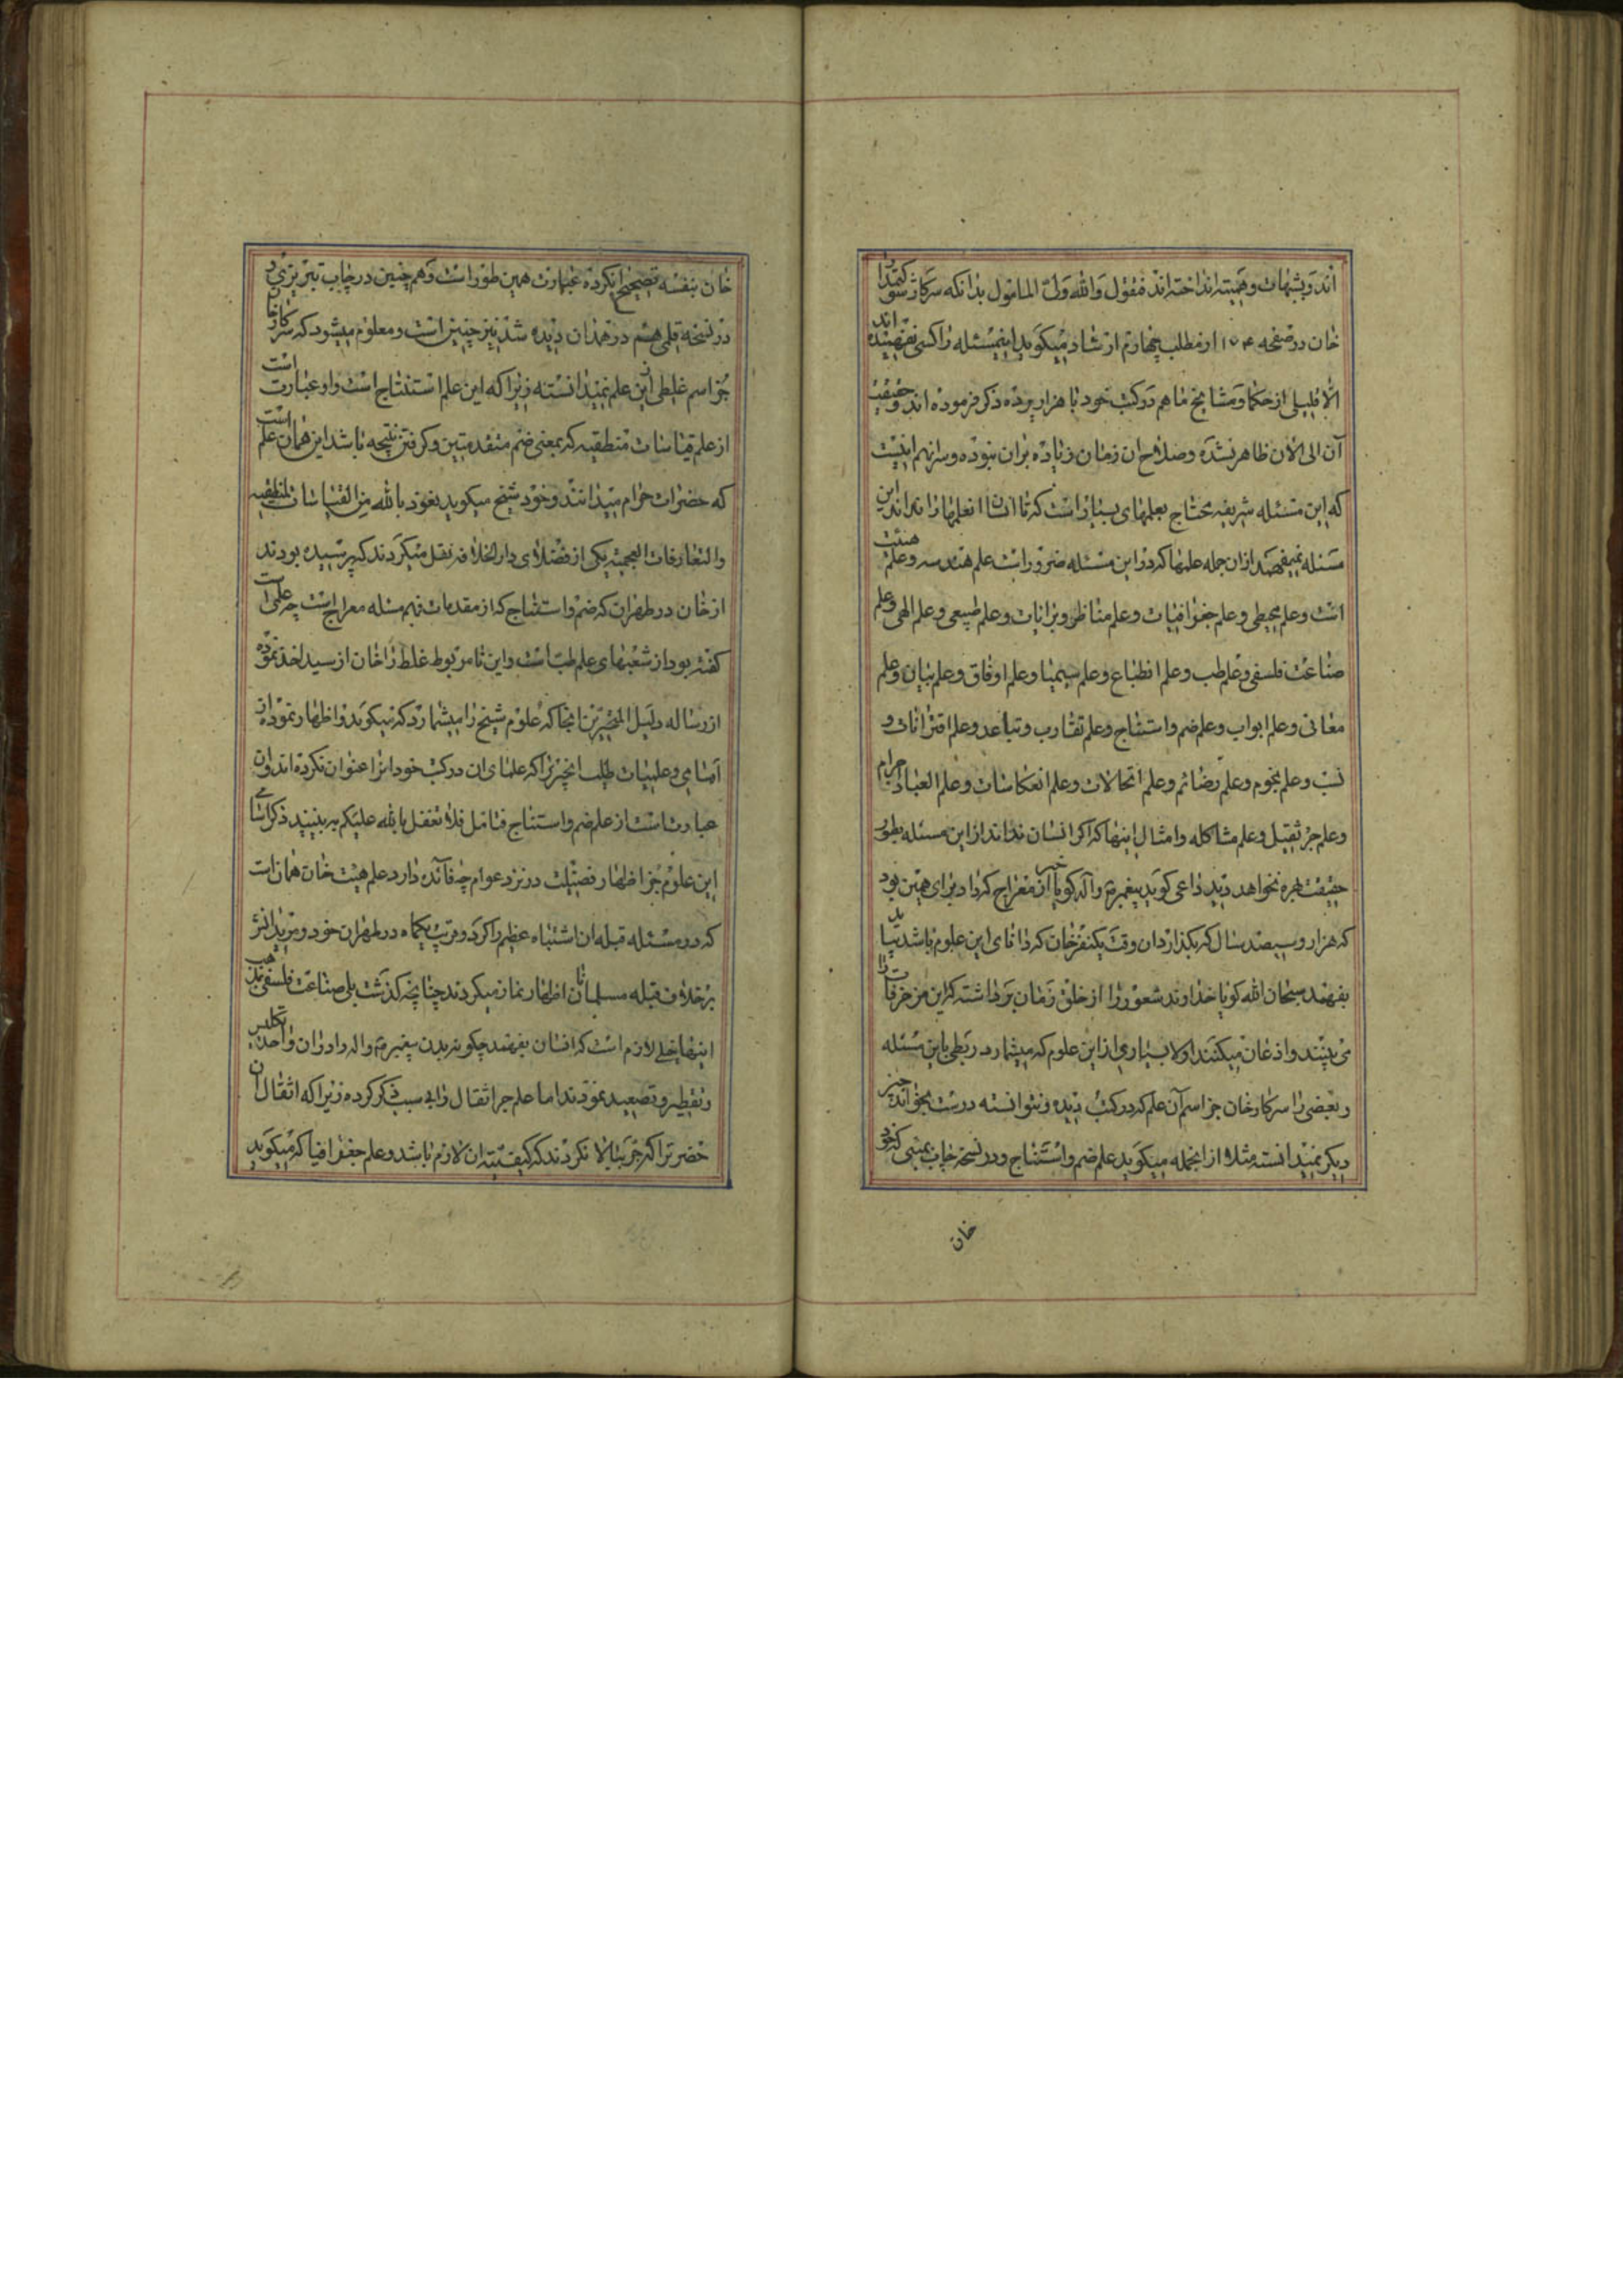 اند و شبهات وهمیته انداخته اند فنقول والله ولی المأمول بدانکه سرکار شوکتمدار
خان در صفحه ۱۵۴ از مطلب چهارم ارشاد میکوید اینمسئله را کسی نفهمیده اند
الا قلیلی از حکما و مشایخ ما هم در کتب خود با هزار پرده ذکر فرموده اند و حقیقت
آن الی الان ظاهر نشده و صلاح ان زمان زیاده بر ان نبوده و سر انهم اینست
که این مسئله شریفه محتاج بعلمهای بسیار است که تا انسان انعلمها را نداند این
مسئله نمیفهمد ازان جمله علمها که در این مسئله ضرور است علم هندسه و علم هیئت
است و علم مجسطی و علم جغرافیات و علم مناظر و مرایات و علم طبیعی و علم الهی و علم
صناعت فلسفی و علم طب و علم انطباع و علم سیمیا و علم اوفاق و علم بیان و علم
معانی و علم ابواب و علم ضم و استنتاج و علم تقارب و تباعد و علم اقترانات و
نسب و علم نجوم و علم رضائم و علم اتحالات و علم انعکاسات و علم العباد اجرام
و علم جر ثقیل و علم مشاکله و امثال اینها که اکر انسان نداند از این مسئله بطور
حقیقت بهره نخواهد دید داعی کوید پیغمبرم و آله کویا خبر از معراج که داد برای همین بود
که هزار و سیصد سال که بکذرد ان وقت یکنفر خان که دانای این علوم باشد بیاید
بفهمند سبحان الله کویا خداوند شعور را از خلق زمان برداشته که این مزخرفات را
می بینند و اذعان میکنند اولا بسیاری از این علوم که میشمارد ربطی باین مسئله
و بعضی را سرکار خان جز اسم آن علم که در کتب دیده و نتوانسته درست بخواند چیز
دیکر نمیدانسته مثلا از انجمله میکوید علم ضم و استنتاج و در نسخه چاپ بمبئی که خود
خان
خان بنفسه تصحیح انکرده عبارت همین طور است و هم چنین در چاپ تبریز و
در نسخه قلمی هم در همدان دیده شد نیز چنین است و معلوم میشود که سرکار خان
جز اسم غلطی از این علم نمیدانسته زیرا که این علم استنتاج است و او عبارت است
از علم قیاسات منطقیه که بمعنی ضم متقدمتین و کرفتن نتیجه باشد این همان علم است
که حضرات حرام میدانند و خود شیخ میکوید نعوذ بالله من القیاسات المنطقیه
والتعارفات العجمیه یکی از فضلای دار الخلافه نقل میکردند که پرسیده بودند
از خان در طهران که ضم و استنتاج که از مقدمات فهم مسئله معراج است چه علمی است
کفته بود از شعبهای علم طب است و این نامربوط غلط را خان از سید اخذ نموده
از رساله دلیل المتحیرین انجا که علوم شیخ را میشمارد که میکوید و اظهار نموده از
اسامی و علمیات طلب انچیز را که علمای ان در کتب خود انرا عنوان نکرده اند وان
عبارت است از علم ضم و استنتاج فتامل فلا تغفل بالله علیکم ببینید ذکر اسامی
این علوم جز اظهار فضیلت در نزد عوام چه فآئده دارد علم هیئت خان همان است
که در مسئله قبله ان اشتباه عظیم را کرد و قریب یکماه در طهران خود و مریدانش
برخلاف قبله مسلمانان اظهار نماز میکردند چنانچه کذشت بلی صناعت فلسفی مذهب
اینها خیلی لازم است که انسان بفهمند چکونه بدن پیغمبرم و اله را دران واحد تکلیس
و تقطیر و تصعید نمودند اما علم جر اثقال را بی سبب ذکر کرده زیرا که اثقال ان
حضرترا که جر ببالا نکردند که کیفیته ان لازم باشد و علم جغرافیا که میکوید